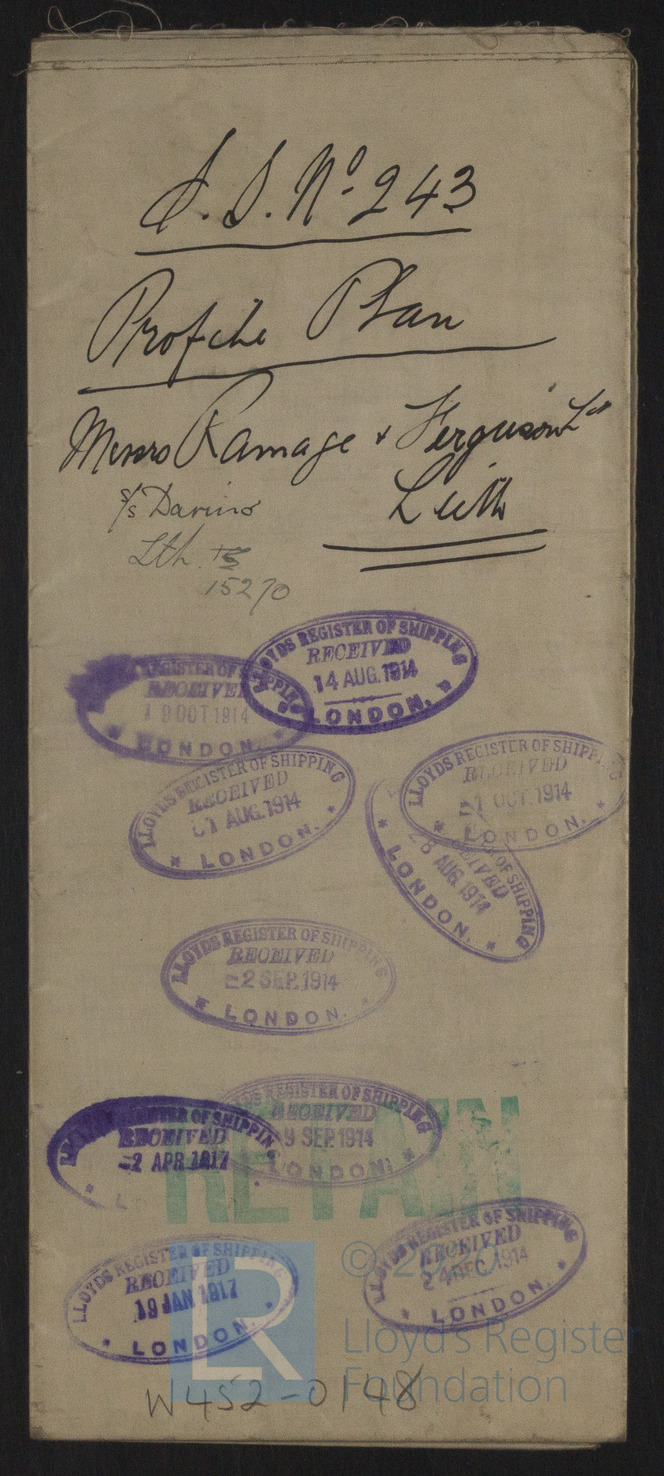 S.S. Nº 243
Profile Plan
Messrs Ramage & Ferguson Ld
Leith
s/s Darino
Lth.
15270
LLOYDS REGISTER OF SHIPPING
RECEIVED
14 AUG. 1914
LONDON.
REGISTER OF SHIPPING
RECEIVED
OCT 1914
LONDON.
LLOYDS REGISTER OF SHIPPING
RECEIVED
AUG. 1914
LONDON.
LLOYDS REGISTER OF SHIPPING
RECEIVED
OCT. 1914
LONDON.
OF SHIPPING
28 AUG. 1914
LONDON.
LLOYDS REGISTER OF SHIPPING
RECEIVED
-2 SEP. 1914
LONDON.
REGISTER OF SHIPPING
RECEIVED
9 SEP. 1914
LONDON.
OF SHIPPING
RECEIVED
-2 APR. 1917
RETAIN
LLOYDS REGISTER OF SHIPPING
RECEIVED
24 DEC. 1914
LONDON.
LLOYDS REGISTER OF SHIPPING
RECEIVED
19 JAN 1917
LONDON.
LR
© 2020
Lloyd's Register
Foundation
W452-0148